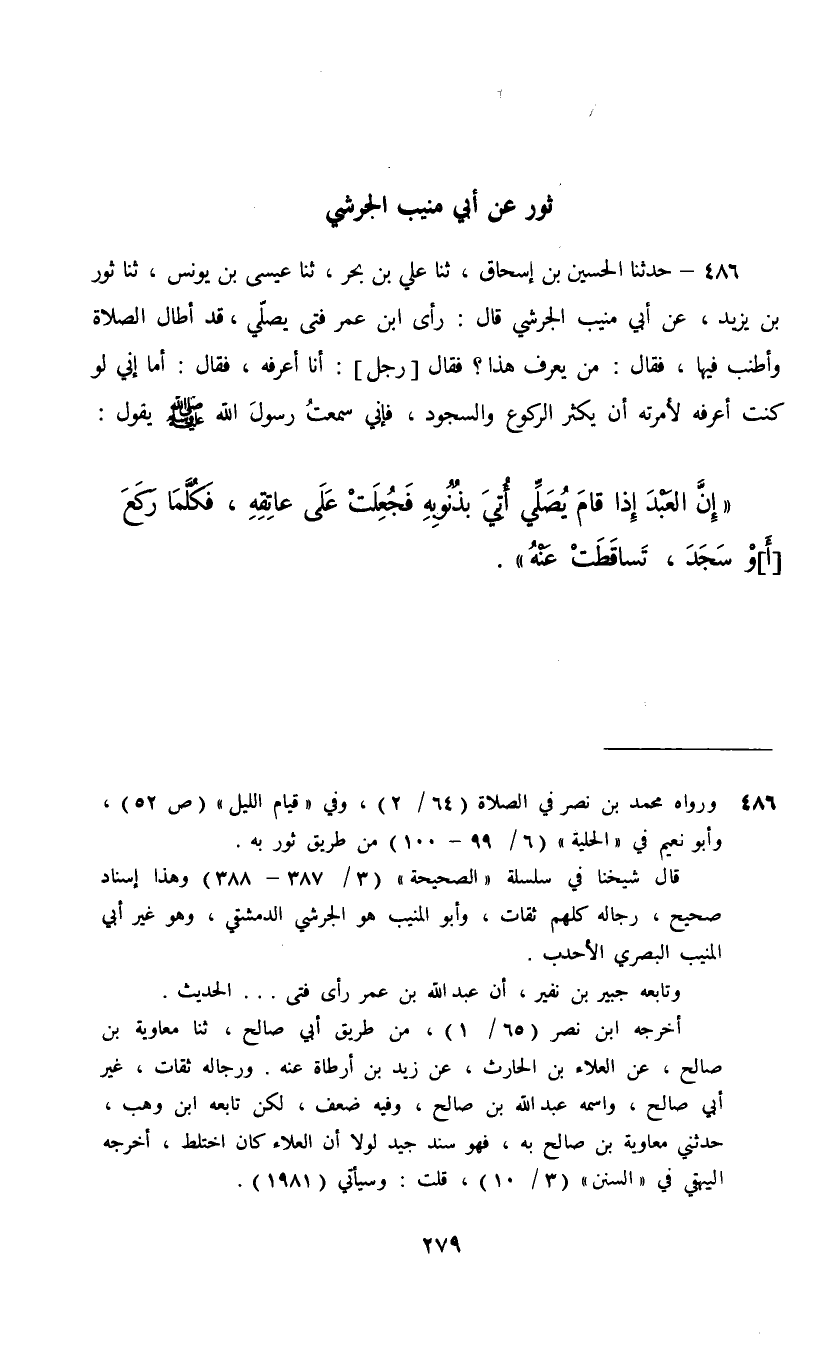 ثور عن أبي منيب الجرشي
٤٨٦ – حدثنا الحسين بن إسحاق ، ثنا علي بن بحر ، ثنا عيسى بن يونس ، ثنا ثور
بن يزيد ، عن أبي منيب الجرشي قال : رأى ابن عمر فتى يصلّي ، قد أطال الصلاة
وأطنب فيها ، فقال : من يعرف هذا ؟ فقال [ رجل ] : أنا أعرفه ، فقال : أما إني لو
كنت أعرفه لأمرته أن يكثر الركوع والسجود ، فإني سمعتُ رسولَ الله ﷺ يقول :
« إِنَّ العَبْدَ إِذا قامَ يُصَلِّي أُتِيَ بذُنُوبِهِ فَجُعِلَتْ عَلَى عاتِقِهِ ، فَكُلَّمَا رَكَعَ
[أَ]وْ سَجَدَ ، تَساقَطَتْ عَنْهُ » .
٤٨٦ ورواه محمد بن نصر في الصلاة ( ٦٤ / ٢ ) ، وفي « قيام الليل » ( ص ٥٢ ) ،
وأبو نعيم في « الحلية » ( ٦ / ٩٩ – ١٠٠ ) من طريق ثور به .
قال شيخنا في سلسلة « الصحيحة » ( ٣ / ٣٨٧ – ٣٨٨ ) وهذا إسناد
صحيح ، رجاله كلهم ثقات ، وأبو المنيب هو الجرشي الدمشقي ، وهو غير أبي
المنيب البصري الأحدب .
وتابعه جبير بن نفير ، أن عبد الله بن عمر رأى فتى ... الحديث .
أخرجه ابن نصر ( ٦٥ / ١ ) ، من طريق أبي صالح ، ثنا معاوية بن
صالح ، عن العلاء بن الحارث ، عن زيد بن أرطاة عنه . ورجاله ثقات ، غير
أبي صالح ، واسمه عبد الله بن صالح ، وفيه ضعف ، لكن تابعه ابن وهب ،
حدثني معاوية بن صالح به ، فهو سند جيد لولا أن العلاء كان اختلط ، أخرجه
البيهقي في « السنن » ( ٣ / ١٠ ) ، قلت : وسيأتي ( ١٩٨١ ) .
٢٧٩